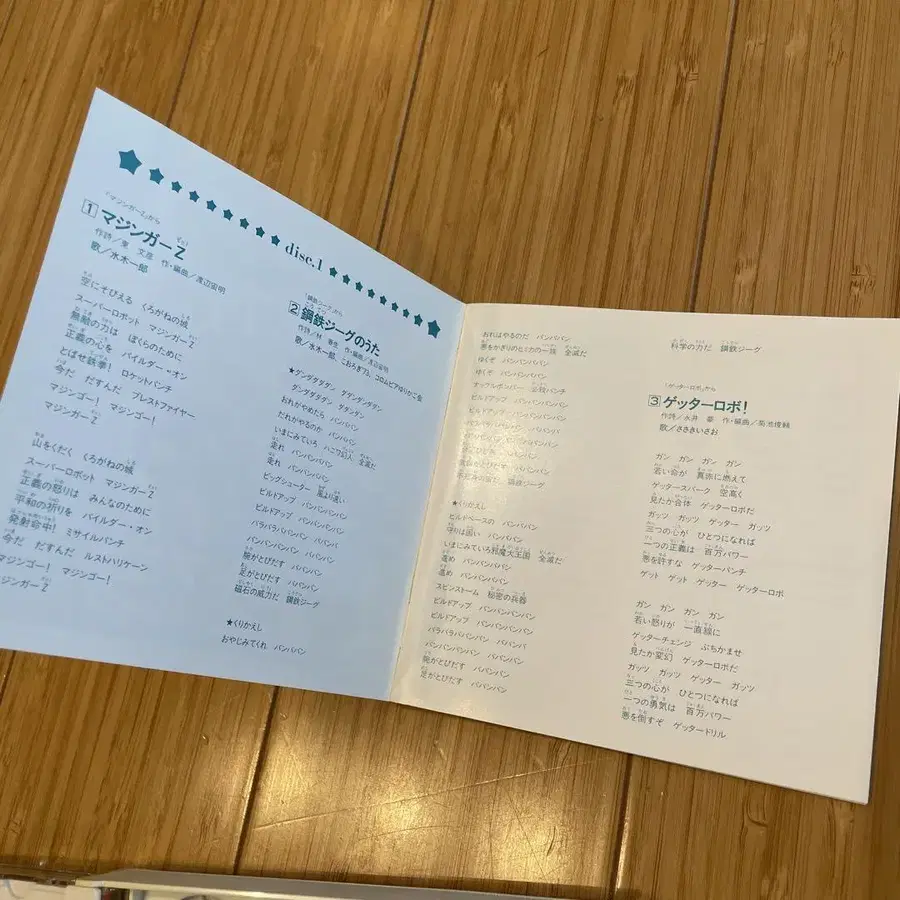 disc.1
「マジンガーZ」から
1 マジンガーZ
作詩／東 文彦 作・編曲／渡辺宙明
歌／水木一郎
空にそびえる くろがねの城
スーパーロボット マジンガーZ
無敵の力は ぼくらのために
正義の心を パイルダー・オン
とばせ鉄拳! ロケットパンチ
今だ だすんだ ブレストファイヤー
マジンゴー! マジンゴー!
マジンガーZ
山をくだく くろがねの城
スーパーロボット マジンガーZ
正義の怒りは みんなのために
平和の祈りを パイルダー・オン
発射命中! ミサイルパンチ
今だ だすんだ ルストハリケーン
マジンゴー! マジンゴー!
マジンガーZ
「鋼鉄ジーグ」から
2 鋼鉄ジーグのうた
作詩／林 春生 作・編曲／渡辺宙明
歌／水木一郎、こおろぎ'73、コロムビアゆりかご会
★ダンダダダダン ダダンダンダダン
ダンダダダダン ダダンダン
おれがやめたら バンババン
だれがやるのか バンババン
いまにみていろ ハニワ幻人 全滅だ
走れ バンババンバン
走れ バンババンバン
ビッグシューター 風より速い
ビルドアップ バンバンバンバン
ビルドアップ バンバンバンバン
バラバラババンバン ババンバ
バンバンバンバン ババンバン
腕がとびだす ババンバン
足がとびだす ババンバン
磁石の威力だ 鋼鉄ジーグ
★くりかえし
おやじみてくれ バンババン
おれはやるのだ バンババン
悪をかぎりのヒミカの一族 全滅だ
ゆくぞ バンババンバン
ゆくぞ バンババンバン
ナックルボンバー 必殺パンチ
ビルドアップ バンバンバンバン
ビルドアップ バンバンバンバン
★くりかえし
ビルドベースの バンババン
守りは固い バンババン
いまにみていろ邪魔大王国 全滅だ
進め バンババンバン
進め バンババンバン
スピンストーム 秘密の兵器
ビルドアップ バンバンバンバン
ビルドアップ バンバンバンバン
バラバラババンバン ババンバ
バンバンバンバン ババンバン
腕がとびだす ババンバン
足がとびだす ババンバン
科学の力だ 鋼鉄ジーグ
「ゲッターロボ」から
3 ゲッターロボ!
作詩／永井 豪 作・編曲／菊池俊輔
歌／ささきいさお
ガン ガン ガン ガン
若い命が 真赤に燃えて
ゲッタースパーク 空高く
見たか合体 ゲッターロボだ
ガッツ ガッツ ゲッター ガッツ
三つの心が ひとつになれば
一つの正義は 百万パワー
悪を許すな ゲッターパンチ
ゲット ゲット ゲッター ゲッターロボ
ガン ガン ガン ガン
若い怒りが 一直線に
ゲッターチェンジ ぶちかませ
見たか変幻 ゲッターロボだ
ガッツ ガッツ ゲッター ガッツ
三つの心が ひとつになれば
一つの勇気は 百万パワー
悪を倒すぞ ゲッタードリル